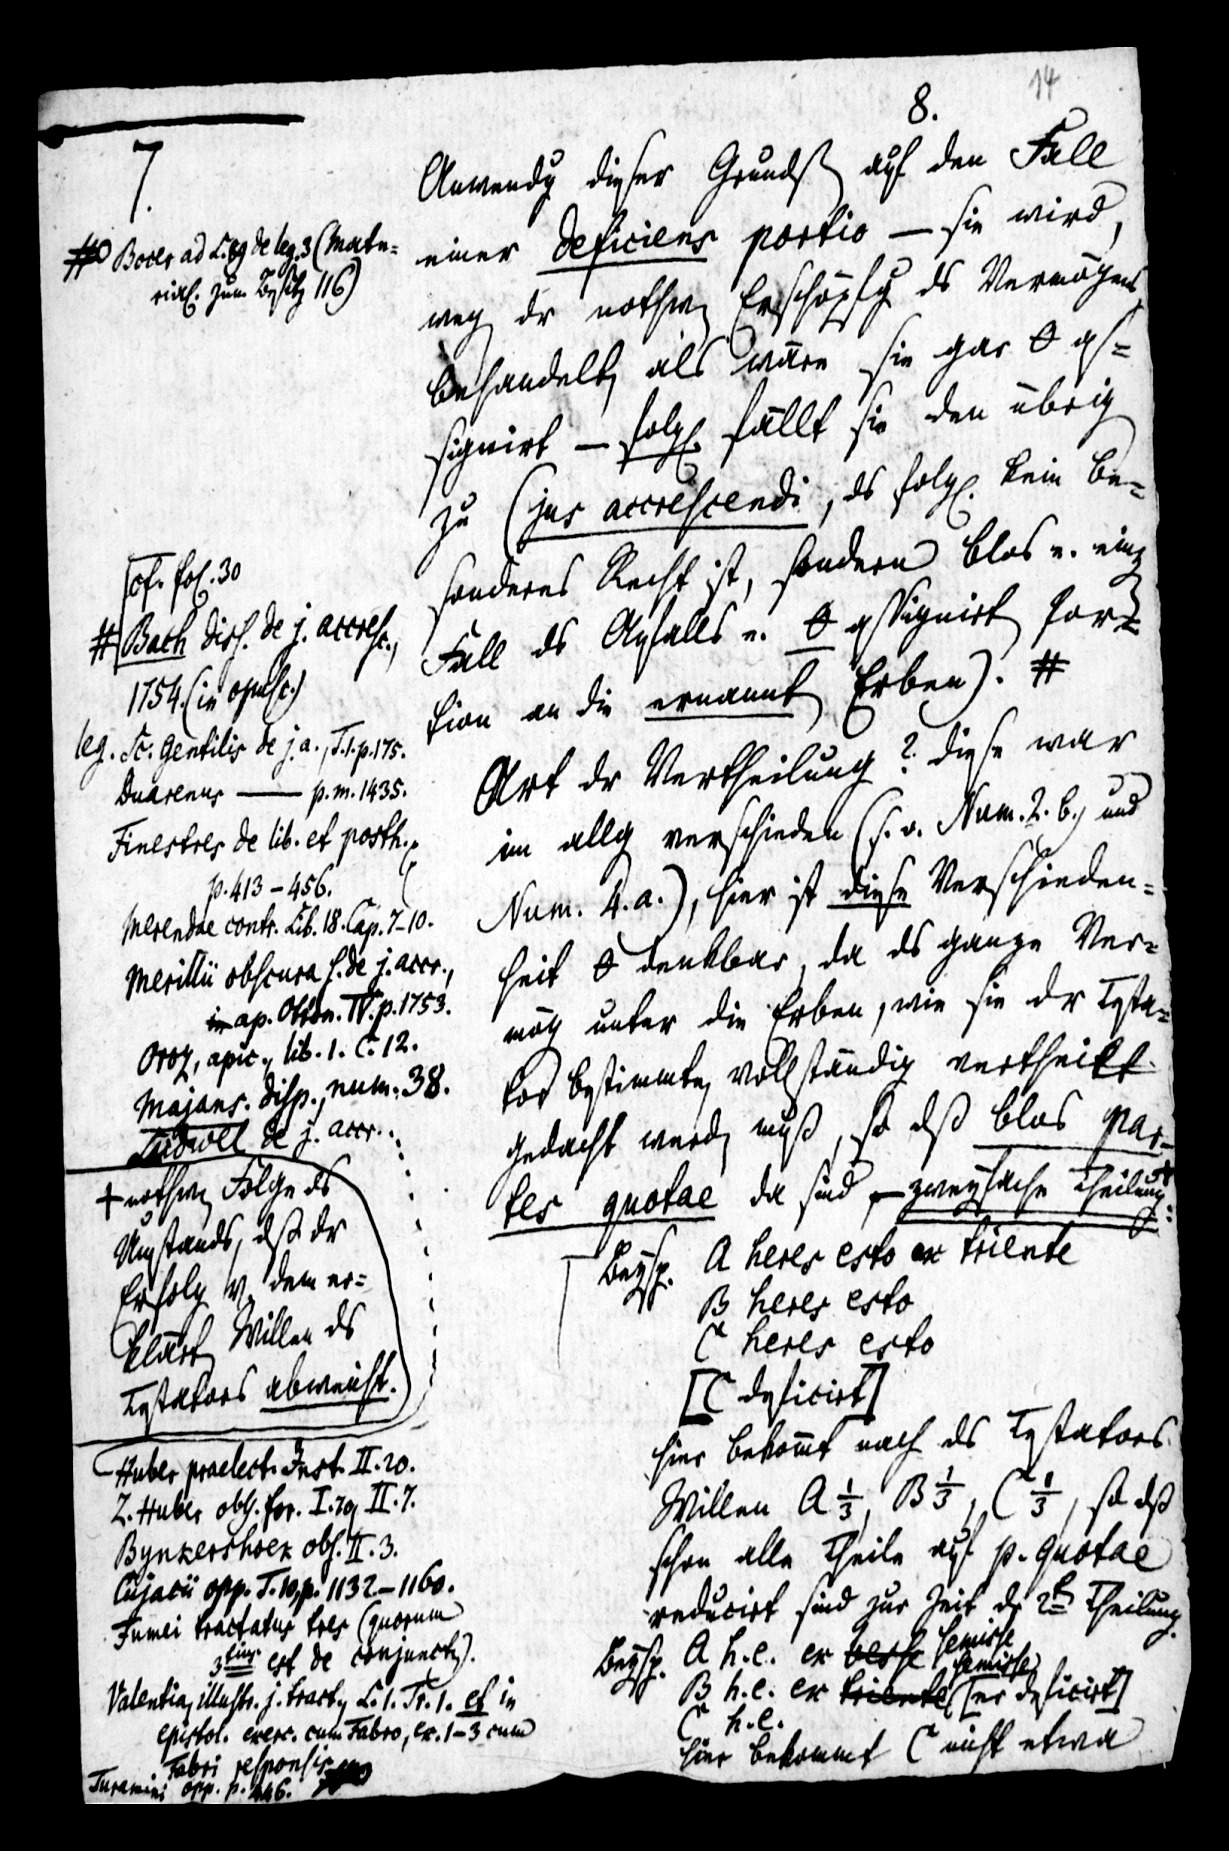 14
8.
7.
Anwendg dieser Grundsz auf den Fall
einer deficiens portio — sie wird,
weg dr nothw Erschöpfg ds Vermögens
behandelt als wäre sie gar 0 as=
signirt — folgl. fällt sie den übrig
zu (jus accrescendi, ds folgl. kein be=
sonderes Recht ist, sondern blos e. einz
Fall ds Anfalls e. 0 assignirt Por=
tion an die ernannt Erben). #
Art dr Vertheilung? diese war
im allg verschieden (s. o. Num. 2. b. und
Num. 4. a.), hier ist diese Verschieden=
heit 0 denkbar, da ds ganze Ver=
mög unter die Erben, wie sie dr Testa=
tor bestimmte, vollständig vertheilt
gedacht werd muß, so dß blos par=
tes quotae da sind — zweyfache Theilung +
Beysp. A heres esto ex triente
B heres esto
C heres esto
[C deficirt]
hier bekommt nach ds Testators
Willen A 1/3, B 1/3, C 1/3, so dß
schon alle Theile auf p. quotae
reducirt sind zur Zeit dr 2t Theilung.
Beysp. A h. e. ex besse semisse
B h. e. ex triente semisse [er deficirt]
C h. e.
hier bekommt C nicht etwa
# Bocer ad L. 89 de leg. 3 (Mate=
rial. zum Besitz 116)
cf. fol. 30
# Bach diss. de j. accresc.,
1754. (in opusc.)
leg. Sc. Gentilis de j. a., T. 1. p. 175.
Duarenus —— p. m. 1435.
Finestres de lib. et posth.
p. 413–456.
Merendae contr. Lib. 18. Cap. 7–10.
Merillii obscura s. de j. accr.,
in ap. Otton. IV. p. 1753.
Oroz, apic., lib. 1. C. 12.
Majans. disp., num. 38.
Ludwell de j. accr.
+ nothw Folge ds
Umstands, dß dr
Erfolg v. dem er=
klärt Willen ds
Testators abweicht.
Huber praelect. Inst. II. 20.
Z. Huber obs. for. I. 70, II. 7.
Bynkershoek obs. II. 3.
Cujacii opp. T. 10, p. 1132–1160.
Fumei tractatus tres (quorum
3tius est de conjunct).
Valentia, illustr. j. tract., L. 1. Tr. 1. et in
epistol. exerc. cum Fabro, ex. 1–3 cum
Fabri responsis
Turamini opp. p. 446.